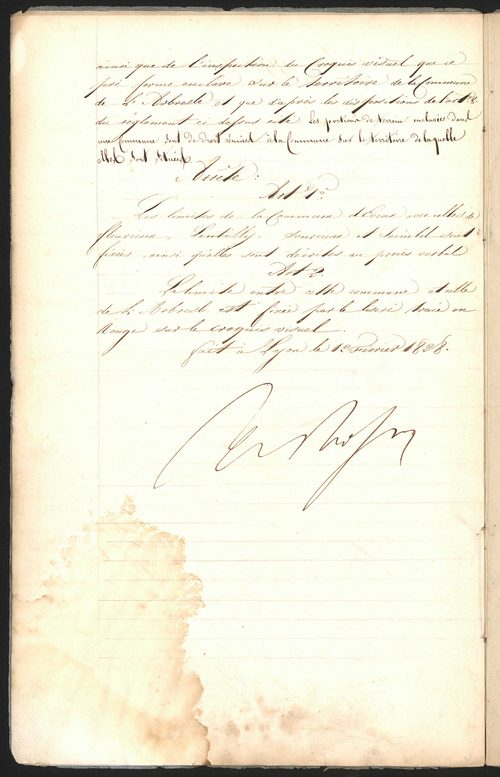 ainsi que de l'inspection du Croquis visuel que ce
pré forme enclave sur le territoire de la Commune
de l'Arbresle et que d'après les dispositions de l'art
du règlement ce dessus cité Les portions de terrein enclavées dans
une commune sont de droit réunies à la Commune sur le territoire de laquelle
elles sont situées
Arrête:
Art 1er
Les limites de la Commune d'Eveux avec celles de
fleurieux, Lentilly, Sourcieux et Saimbel sont
fixées, ainsi qu'elles sont décrites au procès verbal
Art 2
La limite entre cette commune et celle
de L'Arbresle est fixée par le liseré tracé en
Rouge sur le croquis visuel.
fait à Lyon le 12 Fevrier 1828.